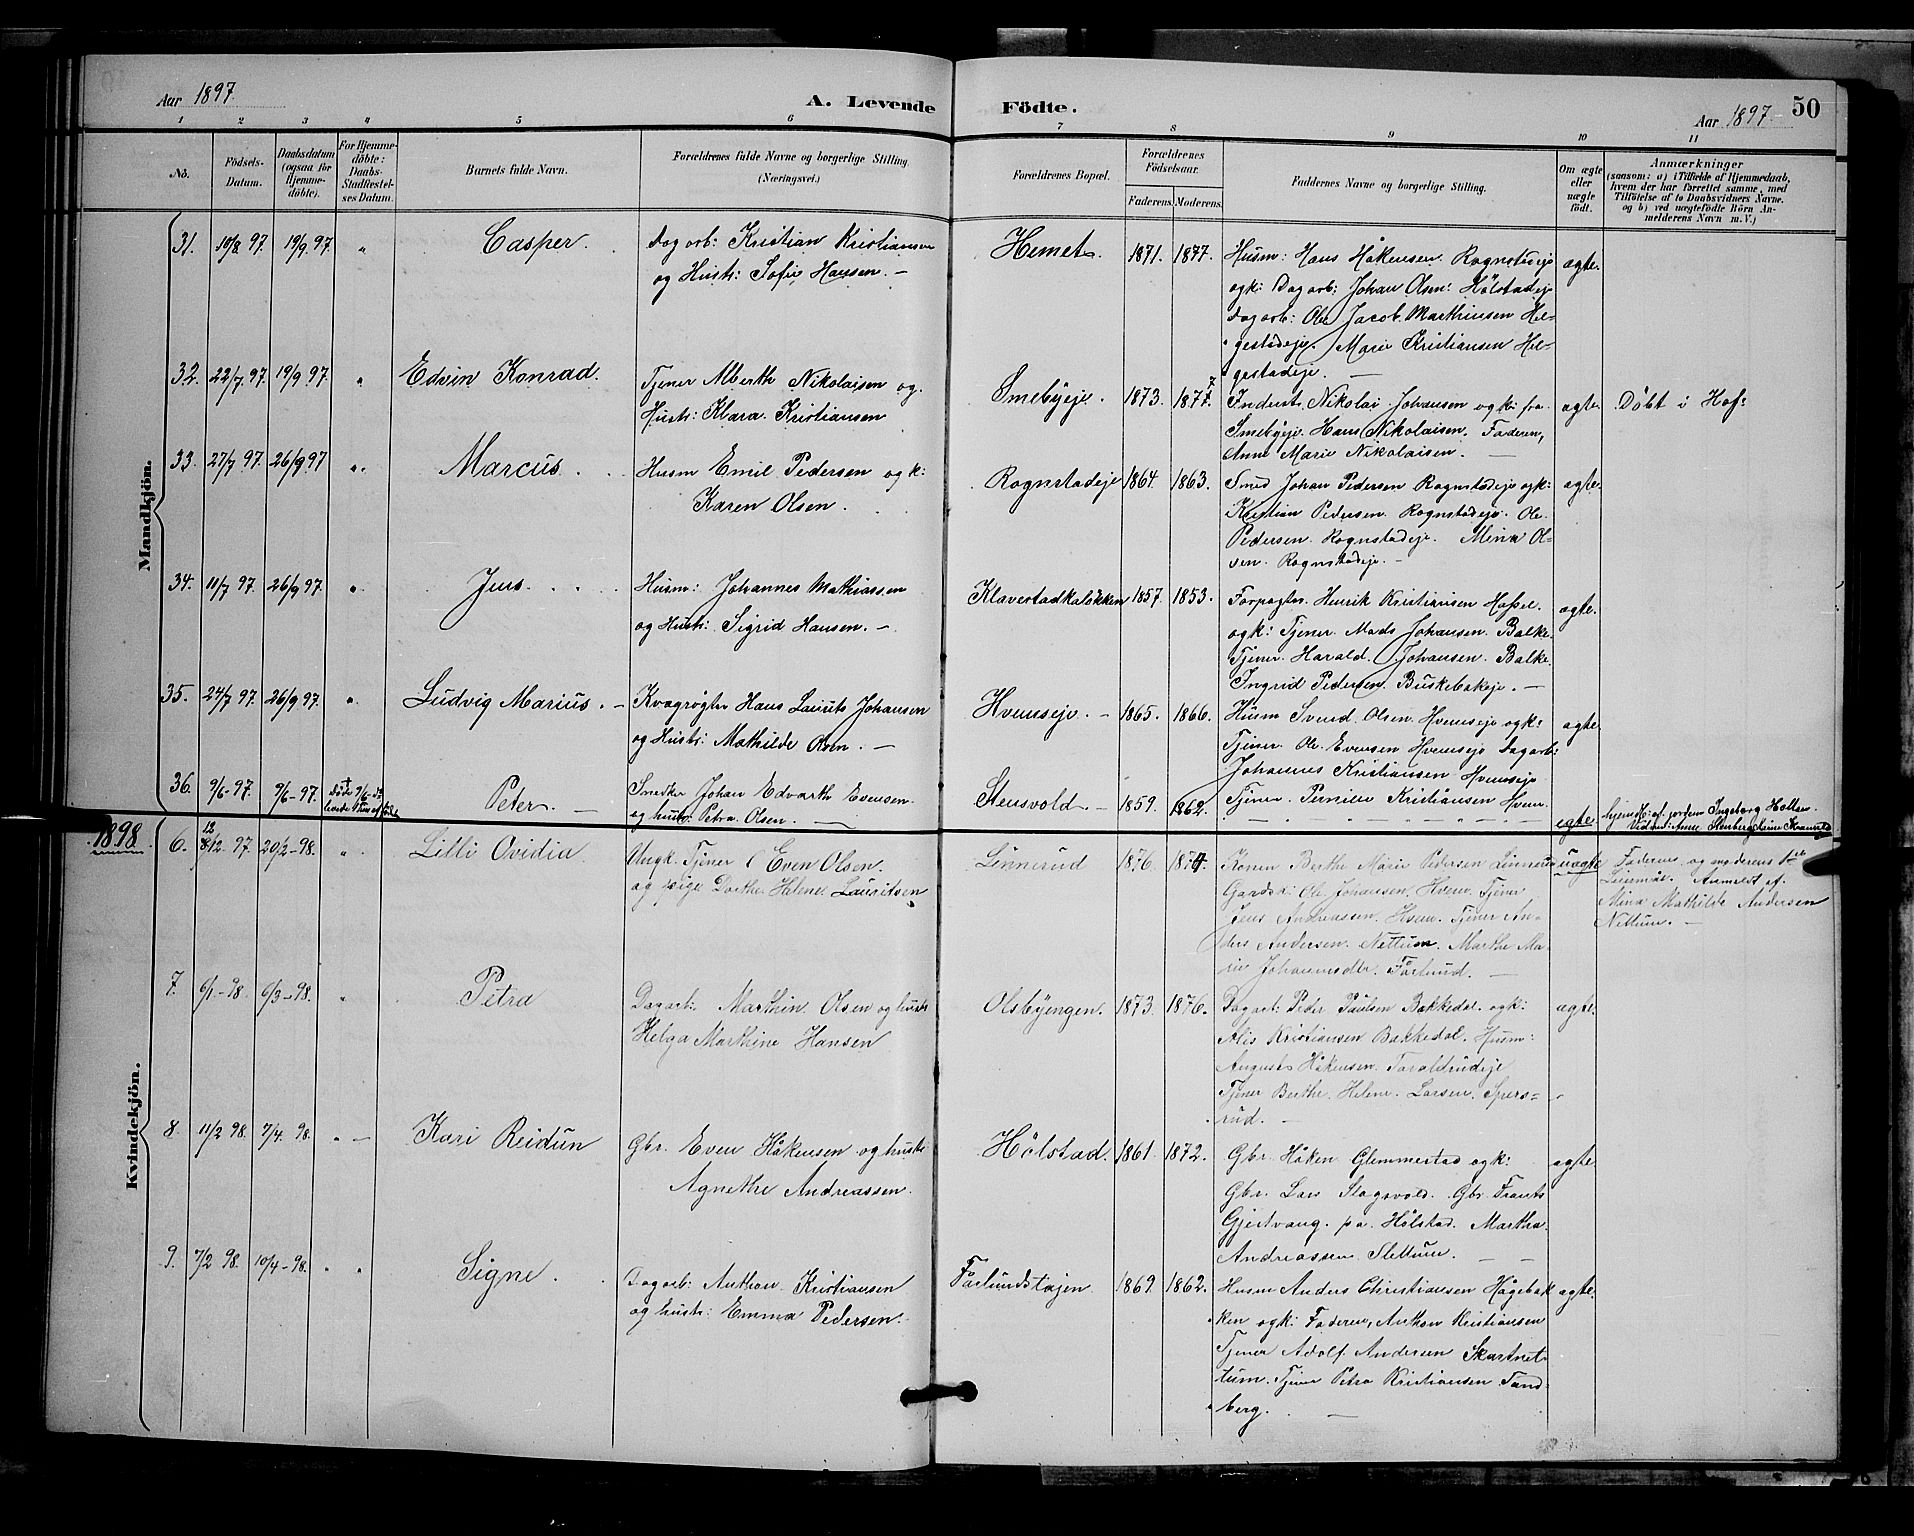 Aar 1897.
A. Levende Födte.
Aar 1897.
50
1 2 3 4 5 6 7 8 9 10 11
No.
Födsels-Datum.
Daabsdatum (ogsaa for Hjemmedöbte).
For Hjemmedöbte: Daabs-Stadfestelses Datum.
Barnets fulde Navn.
Forældrenes fulde Navne og borgerlige Stilling. (Næringsvei.)
Forældrenes Bopæl.
Forældrenes Födselsaar.
Faderens. Moderens.
Faddernes Navne og borgerlige Stilling.
Om ægte eller uægte födt.
Anmærkninger
(saasom: a) i Tilfælde af Hjemmedaab, hvem der har forrettet samme, med Tilföielse af to Daabsvidners Navne. og b) ved uægtefödte Börn Anmelderens Navn m. V.)
Mandkjön.
31. 19/8 97. 19/9 97. " Casper. Dagarb: Kristian Kristiansen
og Hustr: Sofie Hansen. —
Hemet. 1871. 1877. Husm: Hans Håkensen. Rognstadeje
ogk: Dagarb: Johan Olsen: Hölstadeje
Dagarb: Ole Jacob Marthinsen Hel-
gestadeje. Marie Kristiansen Hel-
gestadeje. —
ægte.
32. 22/7 97. 19/9 97. " Edvin Konrad. Tjener Alberth Nikolaisen og.
Hustr: Klara Kristiansen
Smebyeje. 1873. 1877. Inderst. Nikolai Johansen ogk: fra
Smebyeje. Hans Nikolaisen. Faderen,
Anne Marie Nikolaisen. —
ægte. Döbt i Hof:
33. 27/7 97. 26/9 97 " Marcus. Husm Emil Pedersen ogk:
Karen Olsen.
Rognstadeje 1864. 1863. Smed Johan Pedersen Rognstadeje ogk:
Kristian Pedersen. Rognstadeje. Ole
Pedersen. Rognstadeje. Mina Ol-
sen. Rognstadeje. —
ægte.
34. 11/7 97. 26/9 97. " Jens. Husm: Johannes Mathiassen
og Hustr: Sigrid Hansen. —
Klaverstadkalökken 1857. 1853. Forpagter Henrik Kristiansen Hassel.
ogk: Tjener. Mads Johansen. Balke
Tjener. Harald Johansen. Balke
Ingrid Pedersen. Buskebakeje. —
ægte.
35. 24/7 97. 26/9 97. " Ludvig Marius. — Kvægrögter Hans Laurits Johansen
og Hustr: Mathilde Olsen. —
Hvemseje. — 1865. 1866. Husm Svend Olsen. Hvemseje ogk:
Tjener. Ole Evensen Hvemseje Dagarb:
Johannes Kristiansen Hvemseje
Tjener. Pernille Kristiansen Hvem
ægte.
36. 9/6-97. 9/6-97. Peter. — Smedker Johan Edvarth Evensen.
og hustr: Petra Olsen. —
Stensvold. — 1859. 1862. " " " "
ægte hjemd. af jordem Ingeborg Hollen.
1898.
Kvindekjön.
6. 8/12 97. 20/2-98. " Lilli Ovidia. Ungk. Tjener Even Olsen.
og pige Dorthe Helene Lauritsen
Linnerud 1876. 1874. Konen Berthe Marie Pedersen Linnerud
Gardsk: Ole Johansen. Hvem. Tjener
Jens Andreassen. Hvem. Tjener An-
ders Andersen. Nettum. Marthe Ma-
rie Johannesdtr. Fårlund. —
uægte Faderens og moderens 1ste
Leiermål. Anmeldt af.
Mina Mathilde Andersen
Nettum. —
7. 6/1-98. 6/3-98. " Petra Dagarb: Marthin Olsen og hustr
Helga Marthine Hansen
Olsbyengen. 1873. 1876. Dagarb: Peder Paulsen Bakkedal. ogk:
Alis Kristiansen Bakkedal. Husm:
August Håkensen. Taraldrudeje
Tjener Berthe Helene Larsen. Spers-
rud. —
ægte.
8. 11/2 98. 7/4. 98. " — Kari Reidun Gbr. Even Håkensen og hustr:
Agnethe Andreassen.
Hölstad. 1861. 1872. Gbr. Håken Glemmestad ogk:
Gbr. Lars Slagsvold. Gbr. Frants
Gjestvang. pa. Hölstad. Martha
Andreassen Slettum. —
ægte
9. 7/2 98. 10/4-98. " " Signe. Dagarb: Anthon Kristiansen
og hustr: Emma Pedersen.
Fårlundstøjen 1869. 1862. Husm Anders Christiansen Hågebak
ken ogk: Faderen, Anthon Kristiansen
Tjener Adolf Andersen Skartnet-
tum. Tjener Petra Kristiansen Sand-
berg. —
ægte.